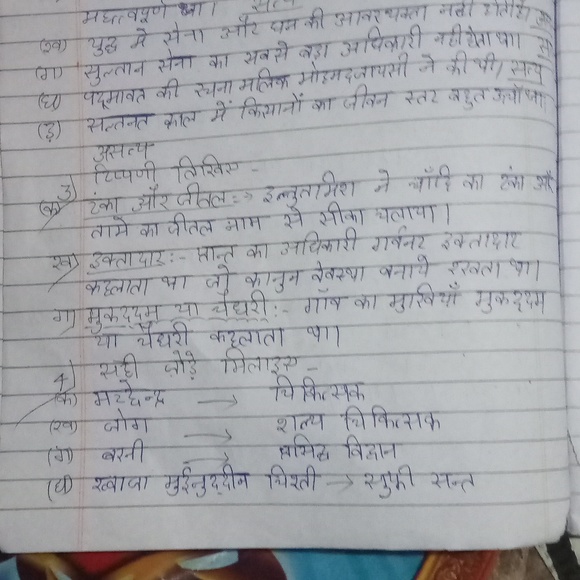 महत्वपूर्ण था। सत्य
(ख) युद्ध में सेना और धन की आवश्यकता नहीं होती
(ग) सुल्तान सेना का सबसे बड़ा अधिकारी नहीं होता था।
(घ) पद्मावत की रचना मलिक मोहमदजायसी ने की थी। सत्य
(ङ) सल्तनत काल में किसानों का जीवन स्तर बहुत ऊँचा था
असत्य
3) टिप्पणी लिखिए -
(क) टंका और जीतल:-> इल्तुतमिश ने चाँदि का टंका और
तामे का जीतल नाम से सीका चलाया।
ख) इक्तादार:- प्रान्त का अधिकारी गर्वनर इक्तादार
कहलाता था जो कानुन वेवस्था बनाये रखता था।
ग) मुकद्दम या चौधरी:- गाँव का मुखियाँ मुकद्दम
या चौधरी कहलाता था।
4) सही जोड़े मिलाइए -
(क) मच्छेन्द्र → चिकित्सक
(ख) जोग → शल्य चिकित्सक
(ग) बरनी → प्रसिद्ध विद्वान
(घ) ख्वाजा मुईनुद्दीन चिश्ती → सुफी सन्त